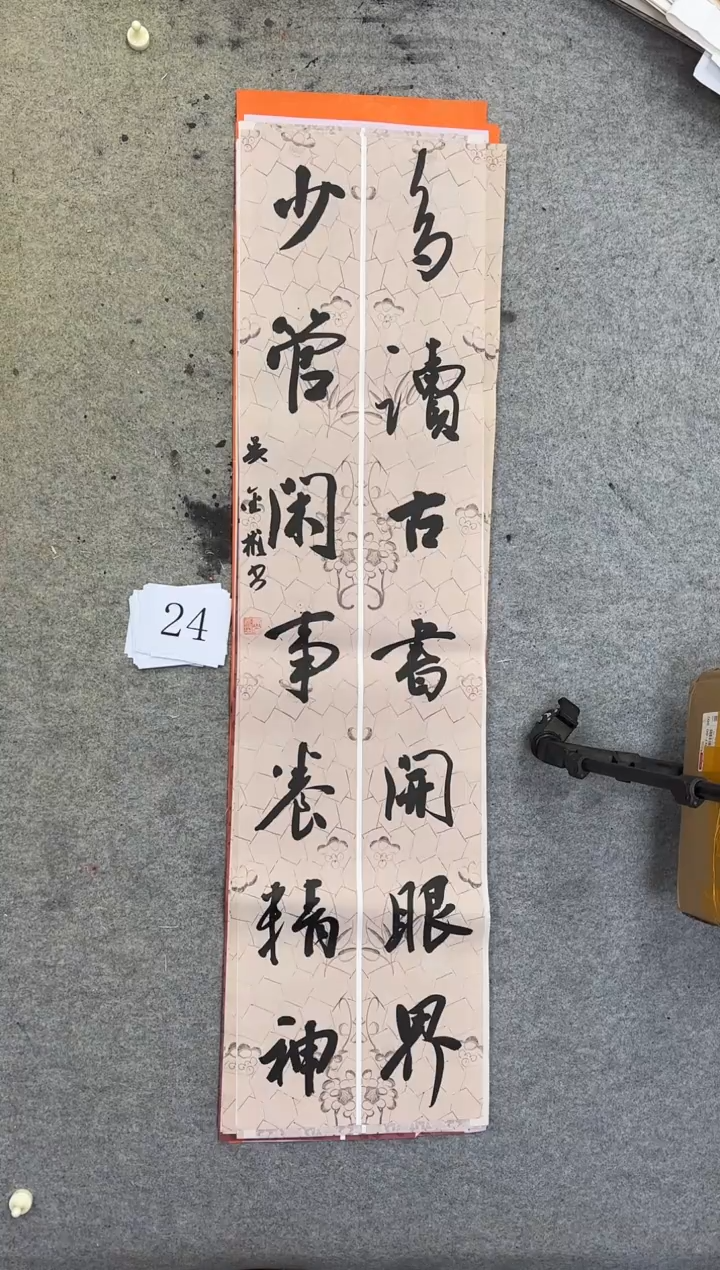 多讀古書開眼界
少管閑事養精神
24